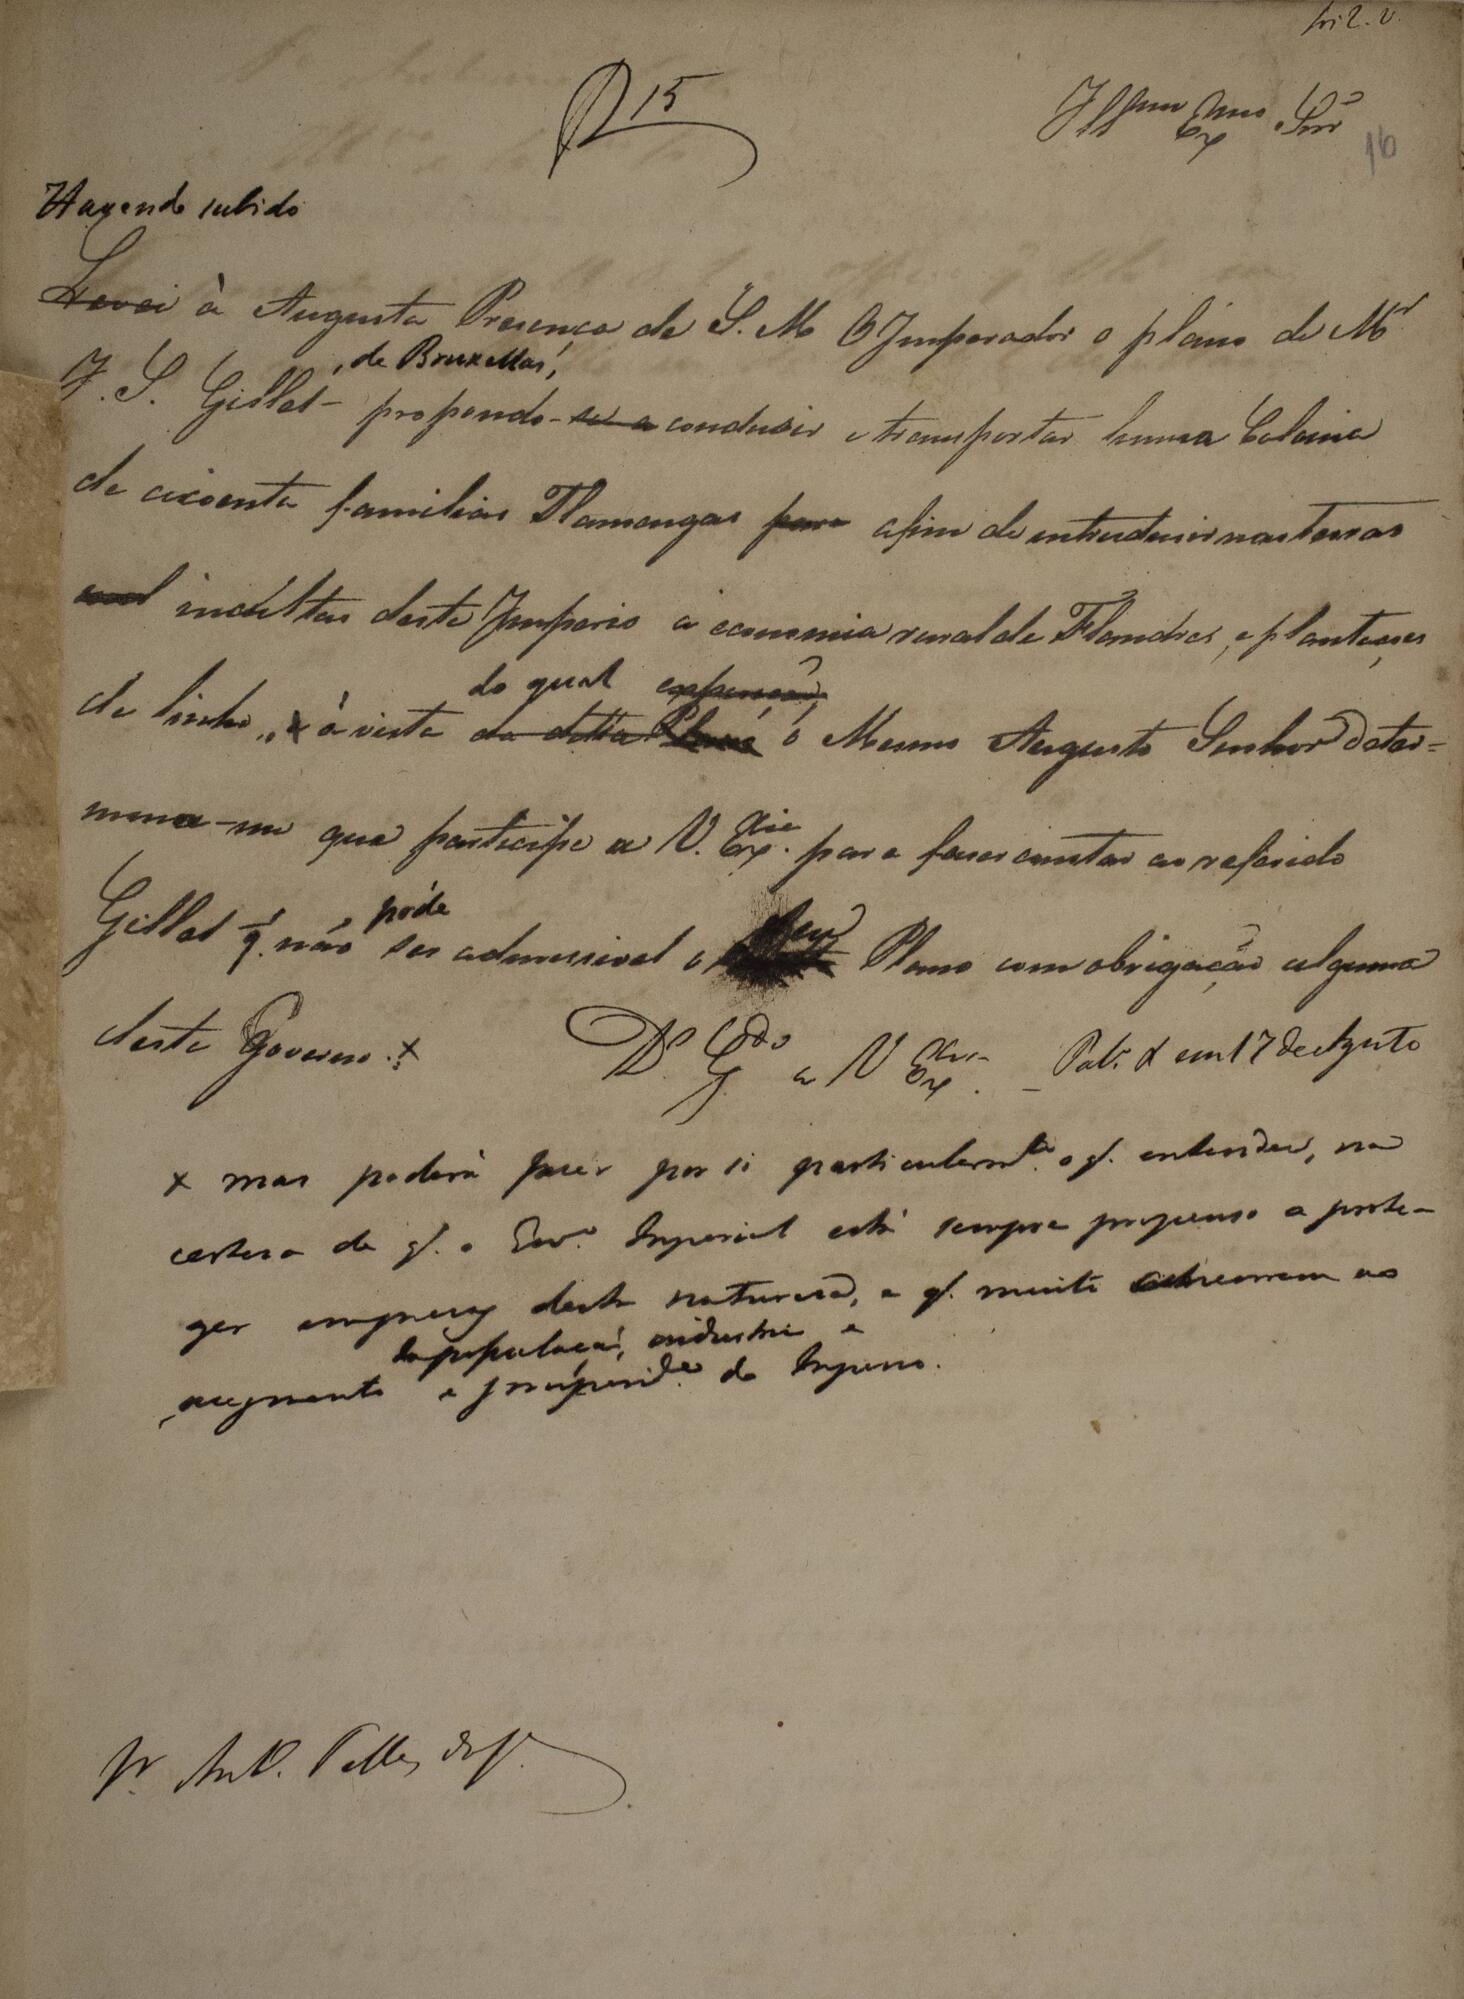 15
Illmo Exmo Snr
16
Havendo subido
Levei à Augusta Presença de S. M. O Imperador o plano de Mr
, de Bruxellas,
F. S. Gillet propondo-se a condusir e transportar huma Colonia
de cicoenta familias Flamengas para afim de introdusir nas terras
incultas deste Imperio a economia rural de Flandres, e plantações
do qual expensão
de linho, e à vista do ditto Plano o Mesmo Augusto Senhor deter-
mina-me que participe a V. Excia para faser constar ao referido
póde
Gillet q. não ser admissivel o seu Plano com obrigação alguma
deste Governo. x
Ds Gde a V Excia - Palo em 17 de Agosto
x mas poderá fazer por si particularmte o q. entender, na
certeza de q. o Govo Imperial está sempre propenso a prote-
ger emprezas desta natureza, e q. muito concorrem ao
da populacaõ, industria e
augmento e prosperide do Imperio.
Sr. Anto. Telles da Sa.